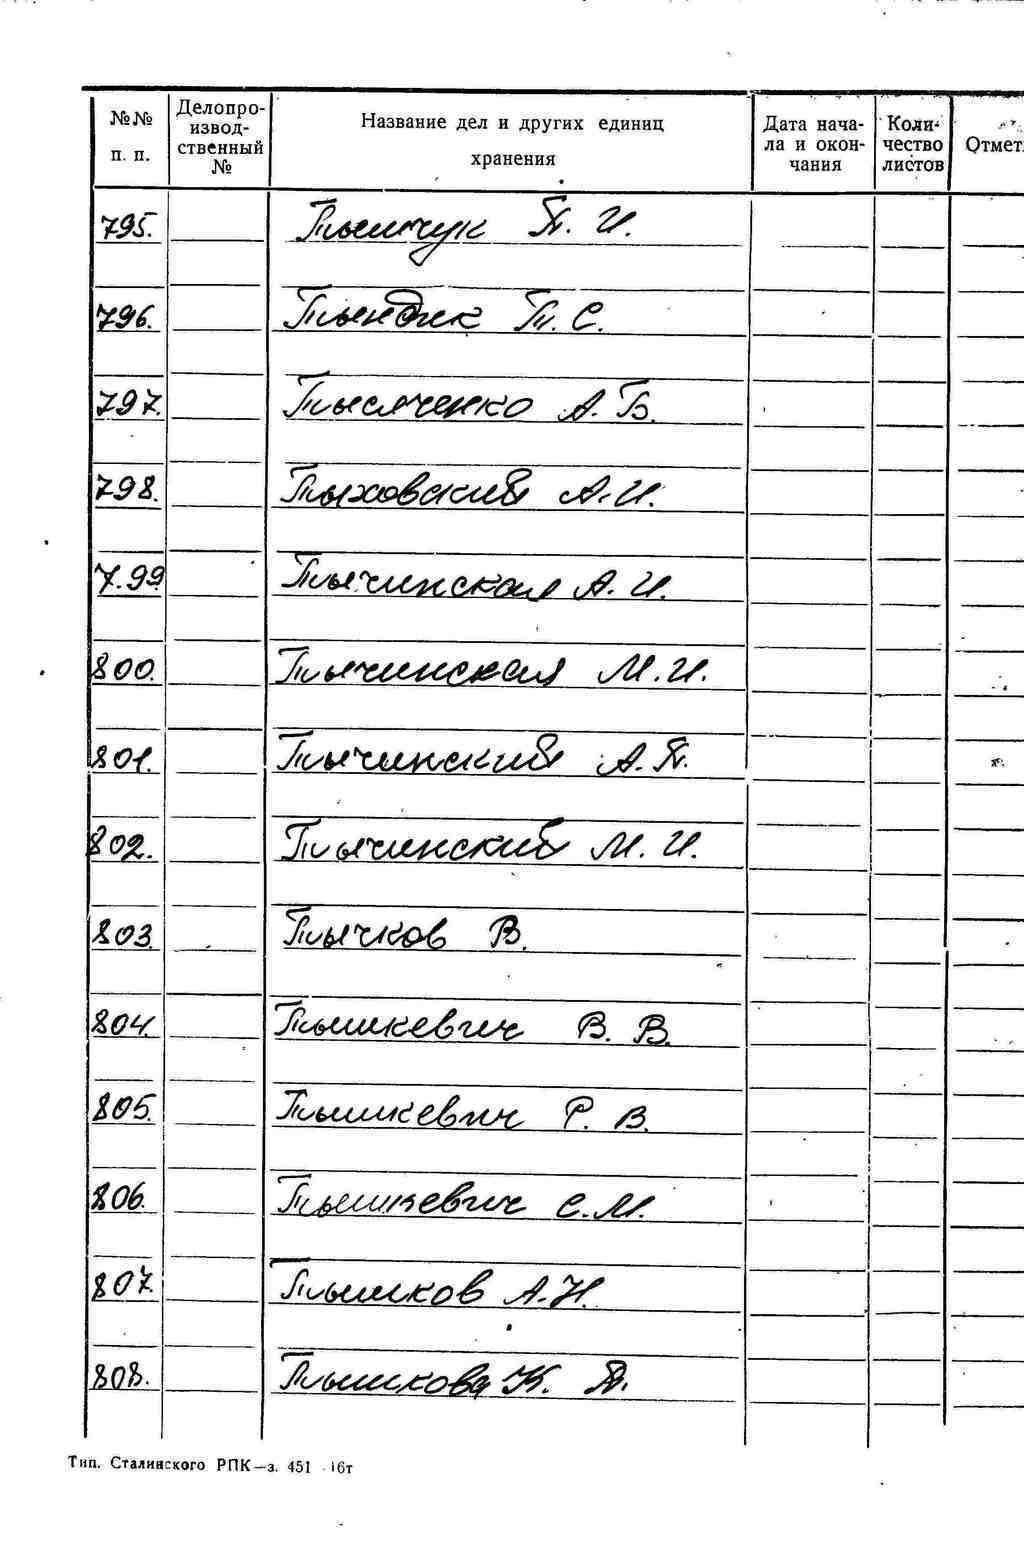 №№ п. п. Делопроизводственный № Название дел и других единиц хранения Дата начала и окончания Количество листов Отмет
795. Тымчук П. И.
796. Тындик Т. С.
797. Тысяченко А. Б.
798. Тыховский А. И.
799. Тычинская А. И.
800. Тычинская М. И.
801. Тычинский А. П.
802. Тычинский М. И.
803. Тычков В.
804. Тышкевич В. В.
805. Тышкевич Р. В.
806. Тышкевич С. М.
807. Тышков А. Н.
808. Тышкова К. Д.
Тип. Сталинского РПК—з. 451 16т